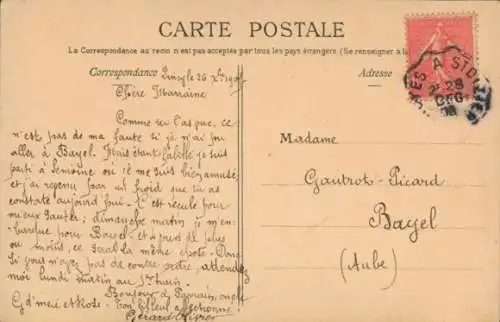 CARTE POSTALE
La Correspondance au recto n'est pas acceptée par tous les pays étrangers. (Se renseigner à la
Correspondance
Adresse
A ST DIZIER
2e 28
DEC
08
26 Xbre 190
Chère Marraine
Comme tu l'as que, ce
n'est pas de ma faute si je n'ai pu
aller à Bayel. Mais étant je suis
parti à Semoine où je me suis bien amusé,
et j'ai revenu par un froid que tu as
constaté aujourd'hui. C'est reculé pour
mieux sauter; dimanche matin je m'em-
barque pour Bayel. et à part de plus
ou moins, ce sera la même chose. Donc
Si vous n'avez pas de contre-ordre, attendez
moi lundi matin au train.
Bonjour à Parrain, oncle
G d'mère et Rose. Ton filleul affectionné.
Gérard
Madame
Gautrot-Picard
Bayel
(Aube)